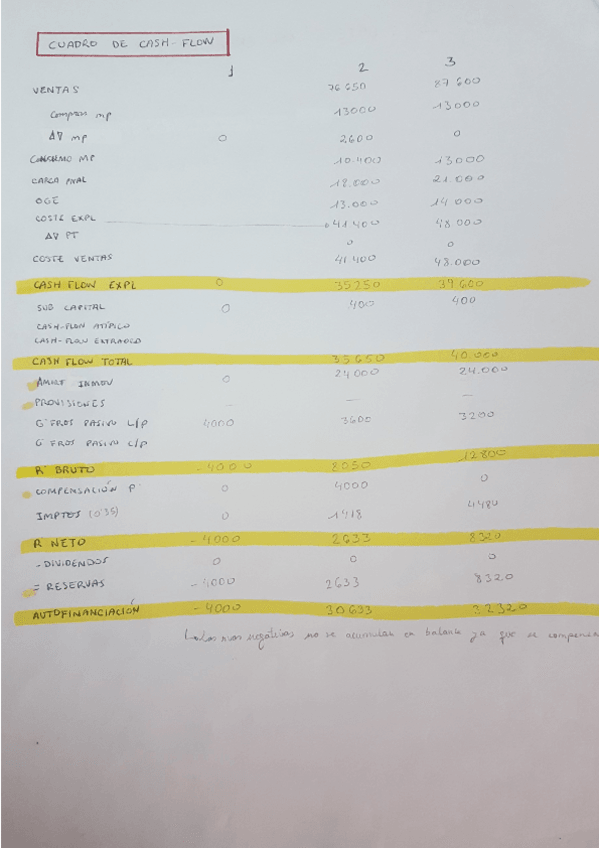 CUADRO DE CASH-FLOW
1 2 3
VENTAS 76650 87600
Compras mp 13000 13000
ΔV mp 0 2600 0
CONSUMO MP 10.400 13000
CARGA PNAL 18.000 21.000
OGE 13.000 14000
COSTE EXPL 41400 48000
ΔV PT 0 0
COSTE VENTAS 41400 48.000
CASH FLOW EXPL 0 35250 39600
SUB CAPITAL 0 400 400
CASH-FLOW ATÍPICO
CASH-FLOW EXTRAORD
CASH FLOW TOTAL 35650 40.000
AMORT INMOV 0 24000 24.000
PROVISIONES — —
Gº FROS PASIVO L/P 4000 3600 3200
Gº FROS PASIVO C/P
Rº BRUTO -4000 8050 12800
COMPENSACIÓN Pº 0 4000 0
IMPTOS (0'35) 0 1418 4480
R NETO -4000 2633 8320
- DIVIDENDOS 0 0 0
= RESERVAS -4000 2633 8320
AUTOFINANCIACIÓN -4000 30633 32320
negativas no se acumulan en balance ya que se compensan